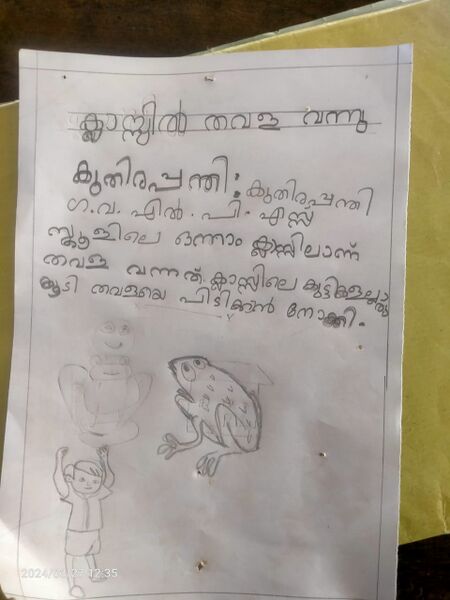 ക്ലാസ്സിൽ തവള വന്നു
കുതിരപ്പന്തി: കുതിരപ്പന്തി
ഗ.വ. എൽ. പി. എസ്സ്
സ്കൂളിലെ ഒന്നാം ക്ലാസ്സിലാണ്
തവള വന്നത്. ക്ലാസ്സിലെ കുട്ടികളെല്ലാരും
കൂടി തവളയെ പിടിക്കാൻ നോക്കി.
2024/02/27 12:35